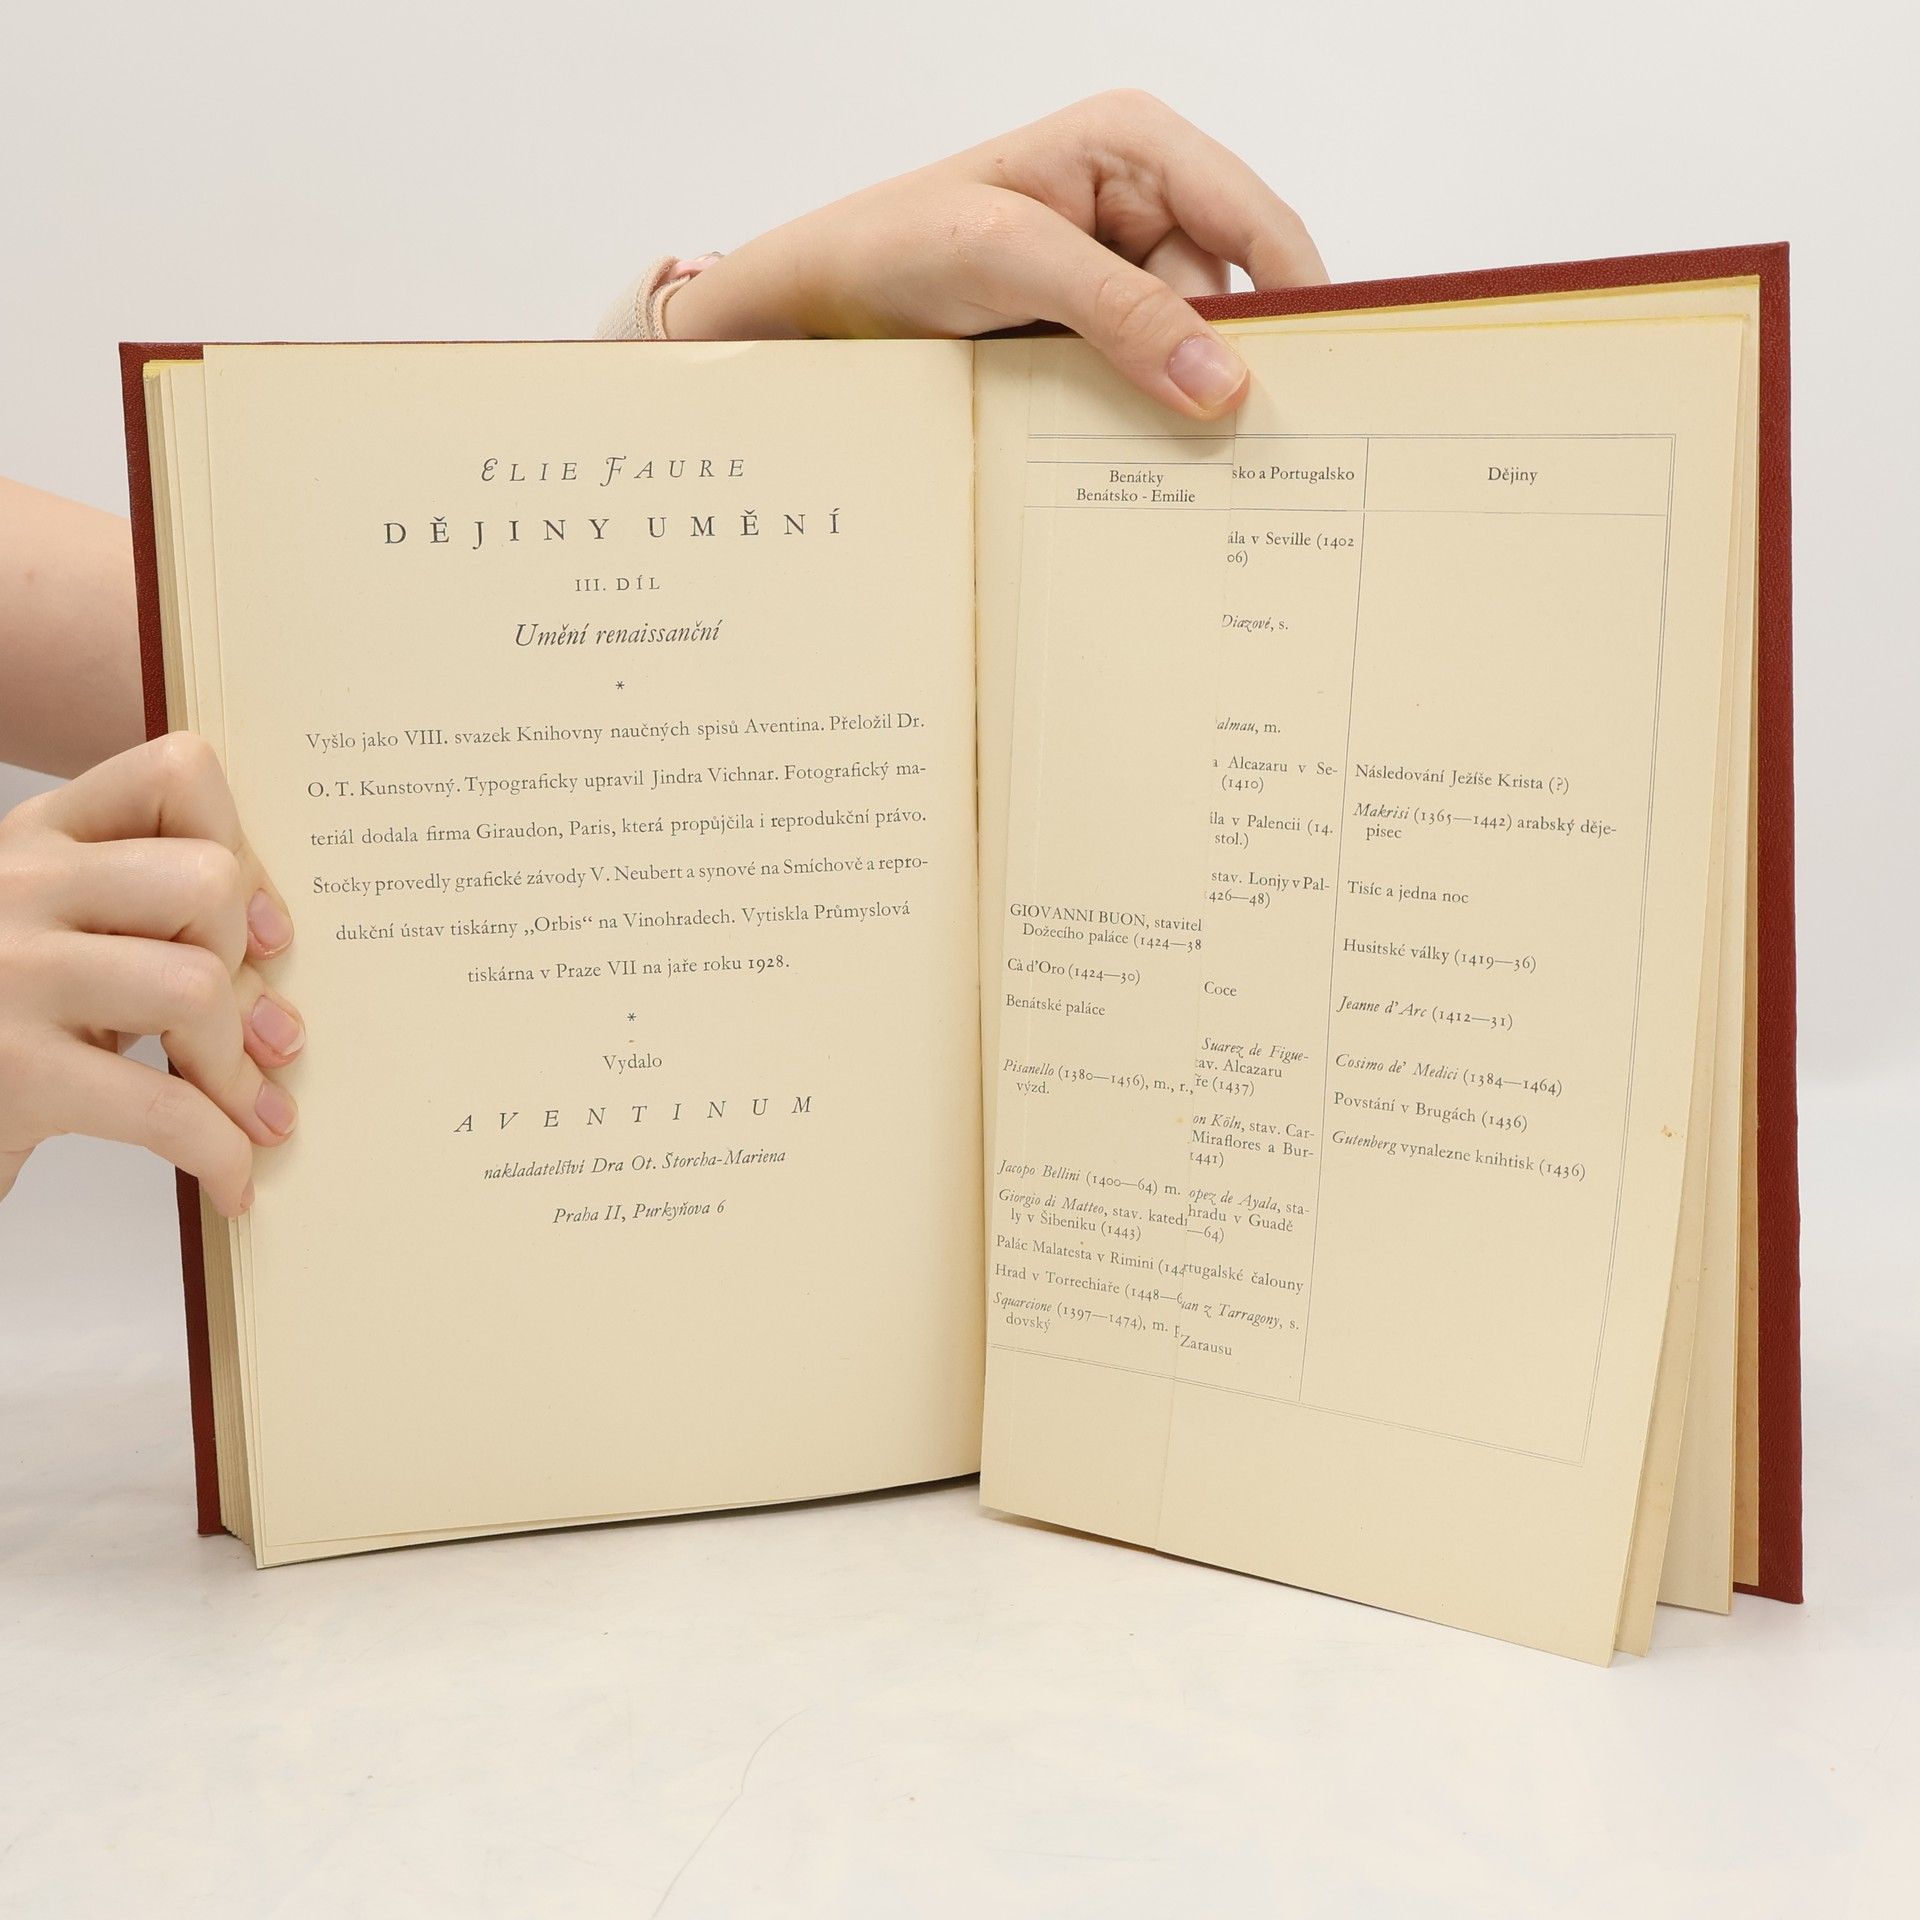 ELIE FAURE
DĚJINY UMĚNÍ
III. DÍL
Umění renaissanční
*
Vyšlo jako VIII. svazek Knihovny naučných spisů Aventina. Přeložil Dr.
O. T. Kunstovný. Typograficky upravil Jindra Vichnar. Fotografický ma-
teriál dodala firma Giraudon, Paris, která propůjčila i reprodukční právo.
Štočky provedly grafické závody V. Neubert a synové na Smíchově a repro-
dukční ústav tiskárny „Orbis“ na Vinohradech. Vytiskla Průmyslová
tiskárna v Praze VII na jaře roku 1928.
*
Vydalo
AVENTINUM
nakladatelství Dra Ot. Štorcha-Mariena
Praha II, Purkyňova 6
Benátky
Benátsko - Emilie
GIOVANNI BUON, stavitel
Dožecího paláce (1424—38
Cà d'Oro (1424—30)
Benátské paláce
Pisanello (1380—1456), m., r.,
výzd.
Jacopo Bellini (1400—64) m.
Giorgio di Matteo, stav. kated
ly v Šibeniku (1443)
Palác Malatesta v Rimini (144
Hrad v Torrechiaře (1448—6
Squarcione (1397—1474), m.
dovský
sko a Portugalsko
ála v Seville (1402
06)
Diazové, s.
almau, m.
a Alcazaru v Se-
(1410)
ála v Palencii (14.
stol.)
stav. Lonjy v Pal-
1426—48)
Coce
Suarez de Figue-
tav. Alcazaru
ře (1437)
on Köln, stav. Car-
Miraflores a Bur-
1441)
opez de Ayala, sta-
hradu v Guadě
—64)
rtugalské čalouny
uan z Tarragony, s.
Zarausu
Dějiny
Následování Ježíše Krista (?)
Makrisi (1365—1442) arabský děje-
pisec
Tisíc a jedna noc
Husitské války (1419—36)
Jeanne d' Arc (1412—31)
Cosimo de' Medici (1384—1464)
Povstání v Brugách (1436)
Gutenberg vynalezne knihtisk (1436)